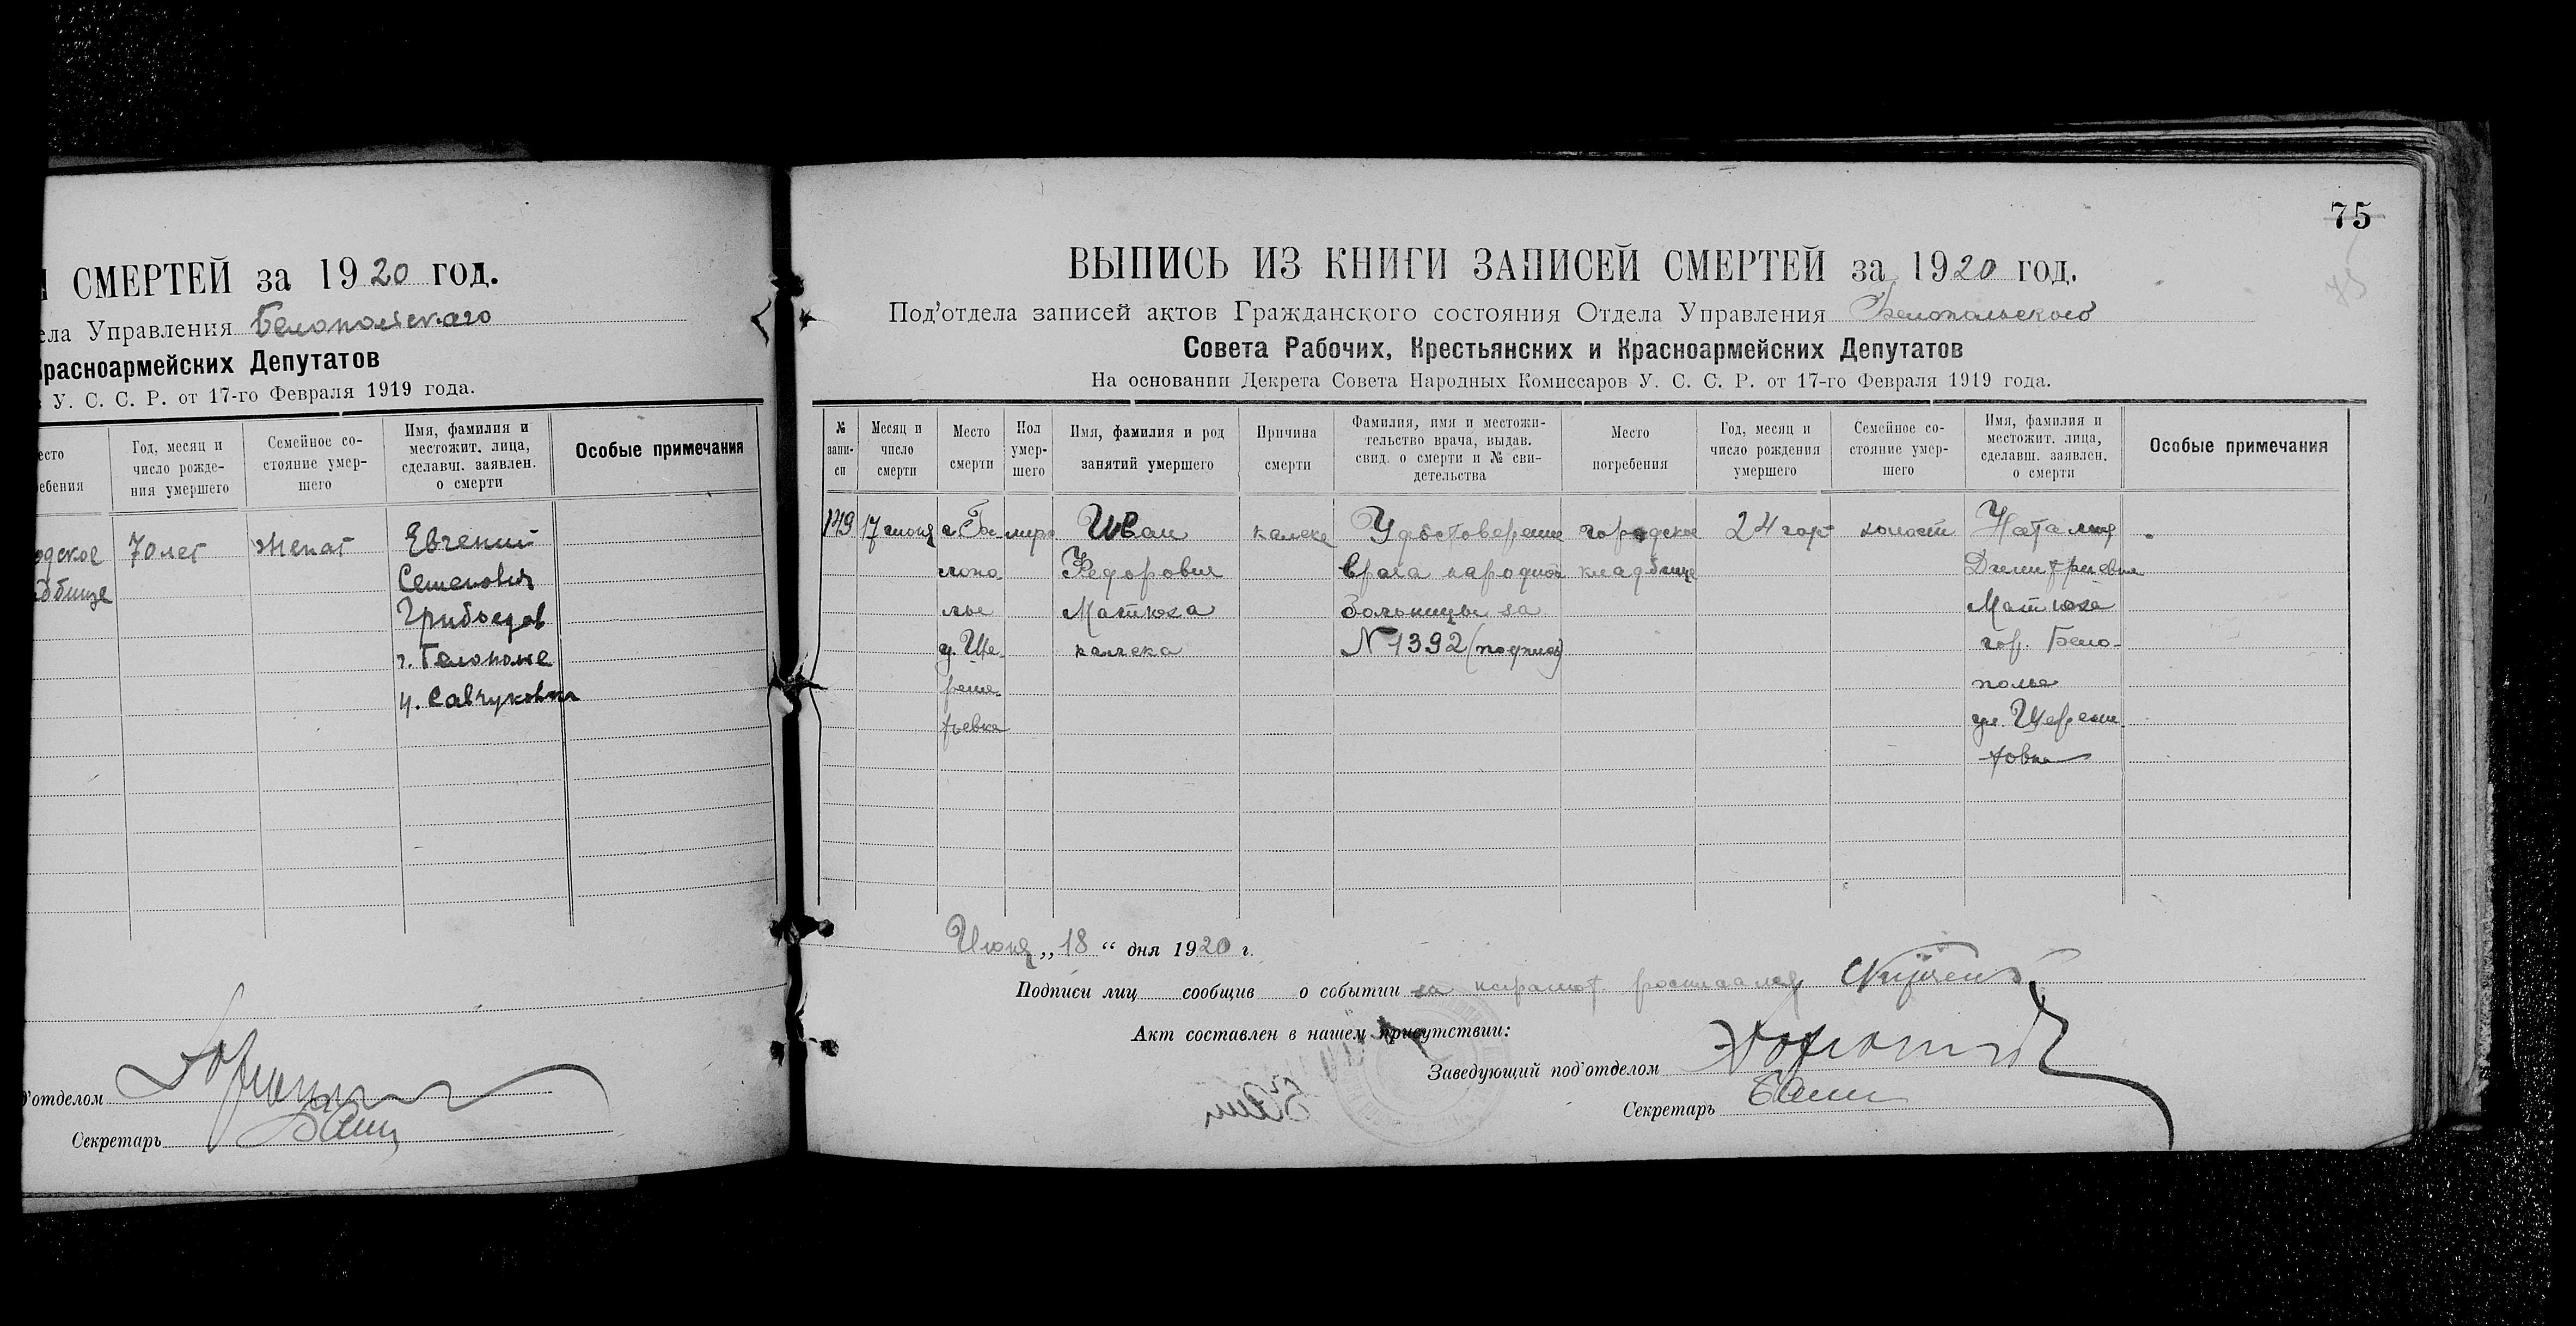 СМЕРТЕЙ за 1920 год.
ела Управления Белопольскаго
расноармейских Депутатов
У. С. С. Р. от 17-го Февраля 1919 года.
есто
ебения
Год, месяц и
число рожде-
ния умершего
Семейное со-
стояние умер-
шего
Имя, фамилия и
местожит. лица,
сделавш. заявлен.
о смерти
Особые примечания
одское
дбище
70 лет
женат
Евгений
Семенович
Грибоедов
г. Белополье
Савчуковка
отделом
Секретарь
75
ВЫПИСЬ ИЗ КНИГИ ЗАПИСЕЙ СМЕРТЕЙ за 1920 год.
Под'отдела записей актов Гражданского состояния Отдела Управления Белопольского
Совета Рабочих, Крестьянских и Красноармейских Депутатов
На основании Декрета Совета Народных Комиссаров У. С. С. Р. от 17-го Февраля 1919 года.
№
запи-
си
Месяц и
число
смерти
Место
смерти
Пол
умер-
шего
Имя, фамилия и род
занятий умершего
Причина
смерти
Фамилия, имя и местожи-
тельство врача, выдав.
свид. о смерти и № сви-
детельства
Место
погребения
Год, месяц и
число рождения
умершего
Семейное со-
стояние умер-
шего
Имя, фамилия и
местожит. лица,
сделавш. заявлен.
о смерти
Особые примечания
149
17 июня
г. Бе
лопо
лье
Ще-
реме-
тьевка
Иван
Федорович
Матюха
калека
калека
Удостоверение
врача народной
больницы за
№ 1392 (подпись)
городское
кладбище
24 год
холост
Наталия
Дмитриевна
Матюха
гор. Бело-
полье
ул. Щереме
товка
Июня „18“ дня 1920 г.
Подписи лиц сообщив о событии за неграмот росписался
Акт составлен в нашем присутствии:
Заведующий под'отделом
Секретарь